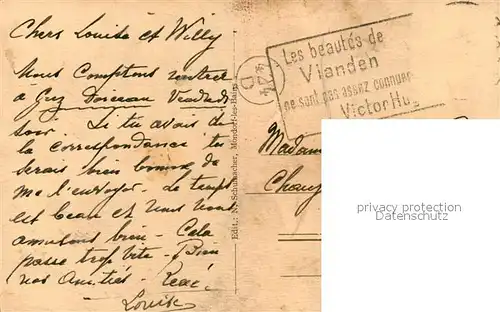 Chers Louise et Willy
Nous Comptons rentrer
à Vendredi
soir. Si tu avais de
la correspondance tu
serais bien bonne de
me l'envoyer. Le temps
est beau et nous nous
amusons bien - Cela
passe trop vite - Bien
nos Amitiés. René
Louise
Edit.: N. Schumacher, Mondorf-les-Bains
Les beautés de
Vianden
ne sont pas assez connues
Victor Hu
Madam
privacy protection